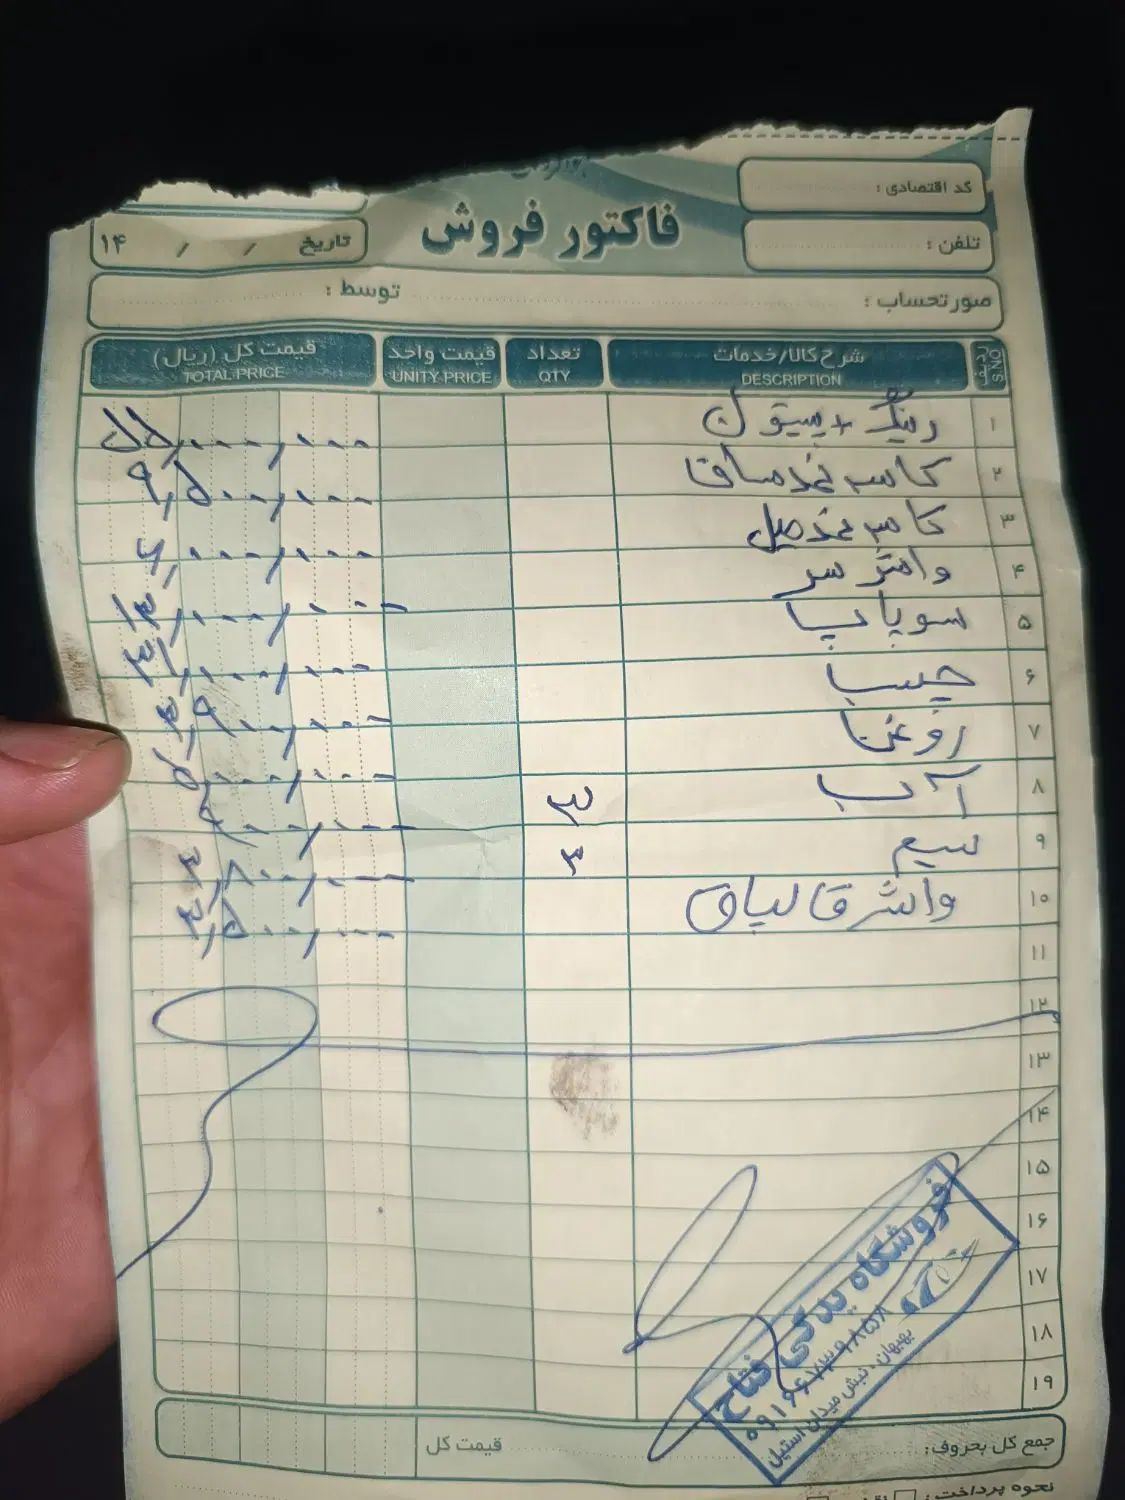 کد اقتصادی :
فاکتور فروش
تلفن :
تاریخ / / ۱۴
صورتحساب : توسط :
ردیف S.NO شرح کالا/خدمات DESCRIPTION تعداد QTY قیمت واحد UNITY PRICE قیمت کل (ریال) TOTAL PRICE
۱ رینگ + پیستون ۵۵,۰۰۰,۰۰۰
۲ کاسه نمد ساق ۹,۵۰۰,۰۰۰
۳ کاسه نمد میل ۶,۰۰۰,۰۰۰
۴ واشر سر ۱۳,۰۰۰,۰۰۰
۵ سوپاپ ۳۱,۰۰۰,۰۰۰
۶ چسب ۳,۹۰۰,۰۰۰
۷ روغن ۵,۰۰۰,۰۰۰
۸ آب ۳
۹ سیم ۳ ۳,۸۰۰,۰۰۰
۱۰ واشر قالپاق ۳,۵۰۰,۰۰۰
۱۱
۱۲
۱۳
۱۴
۱۵
۱۶
۱۷
۱۸
۱۹
فروشگاه یدکی فتاح
۰۹۱۶۶۷۳۹۸۵۸
بهبهان - نبش میدان استیل
جمع کل بحروف: قیمت کل
نحوه پرداخت :